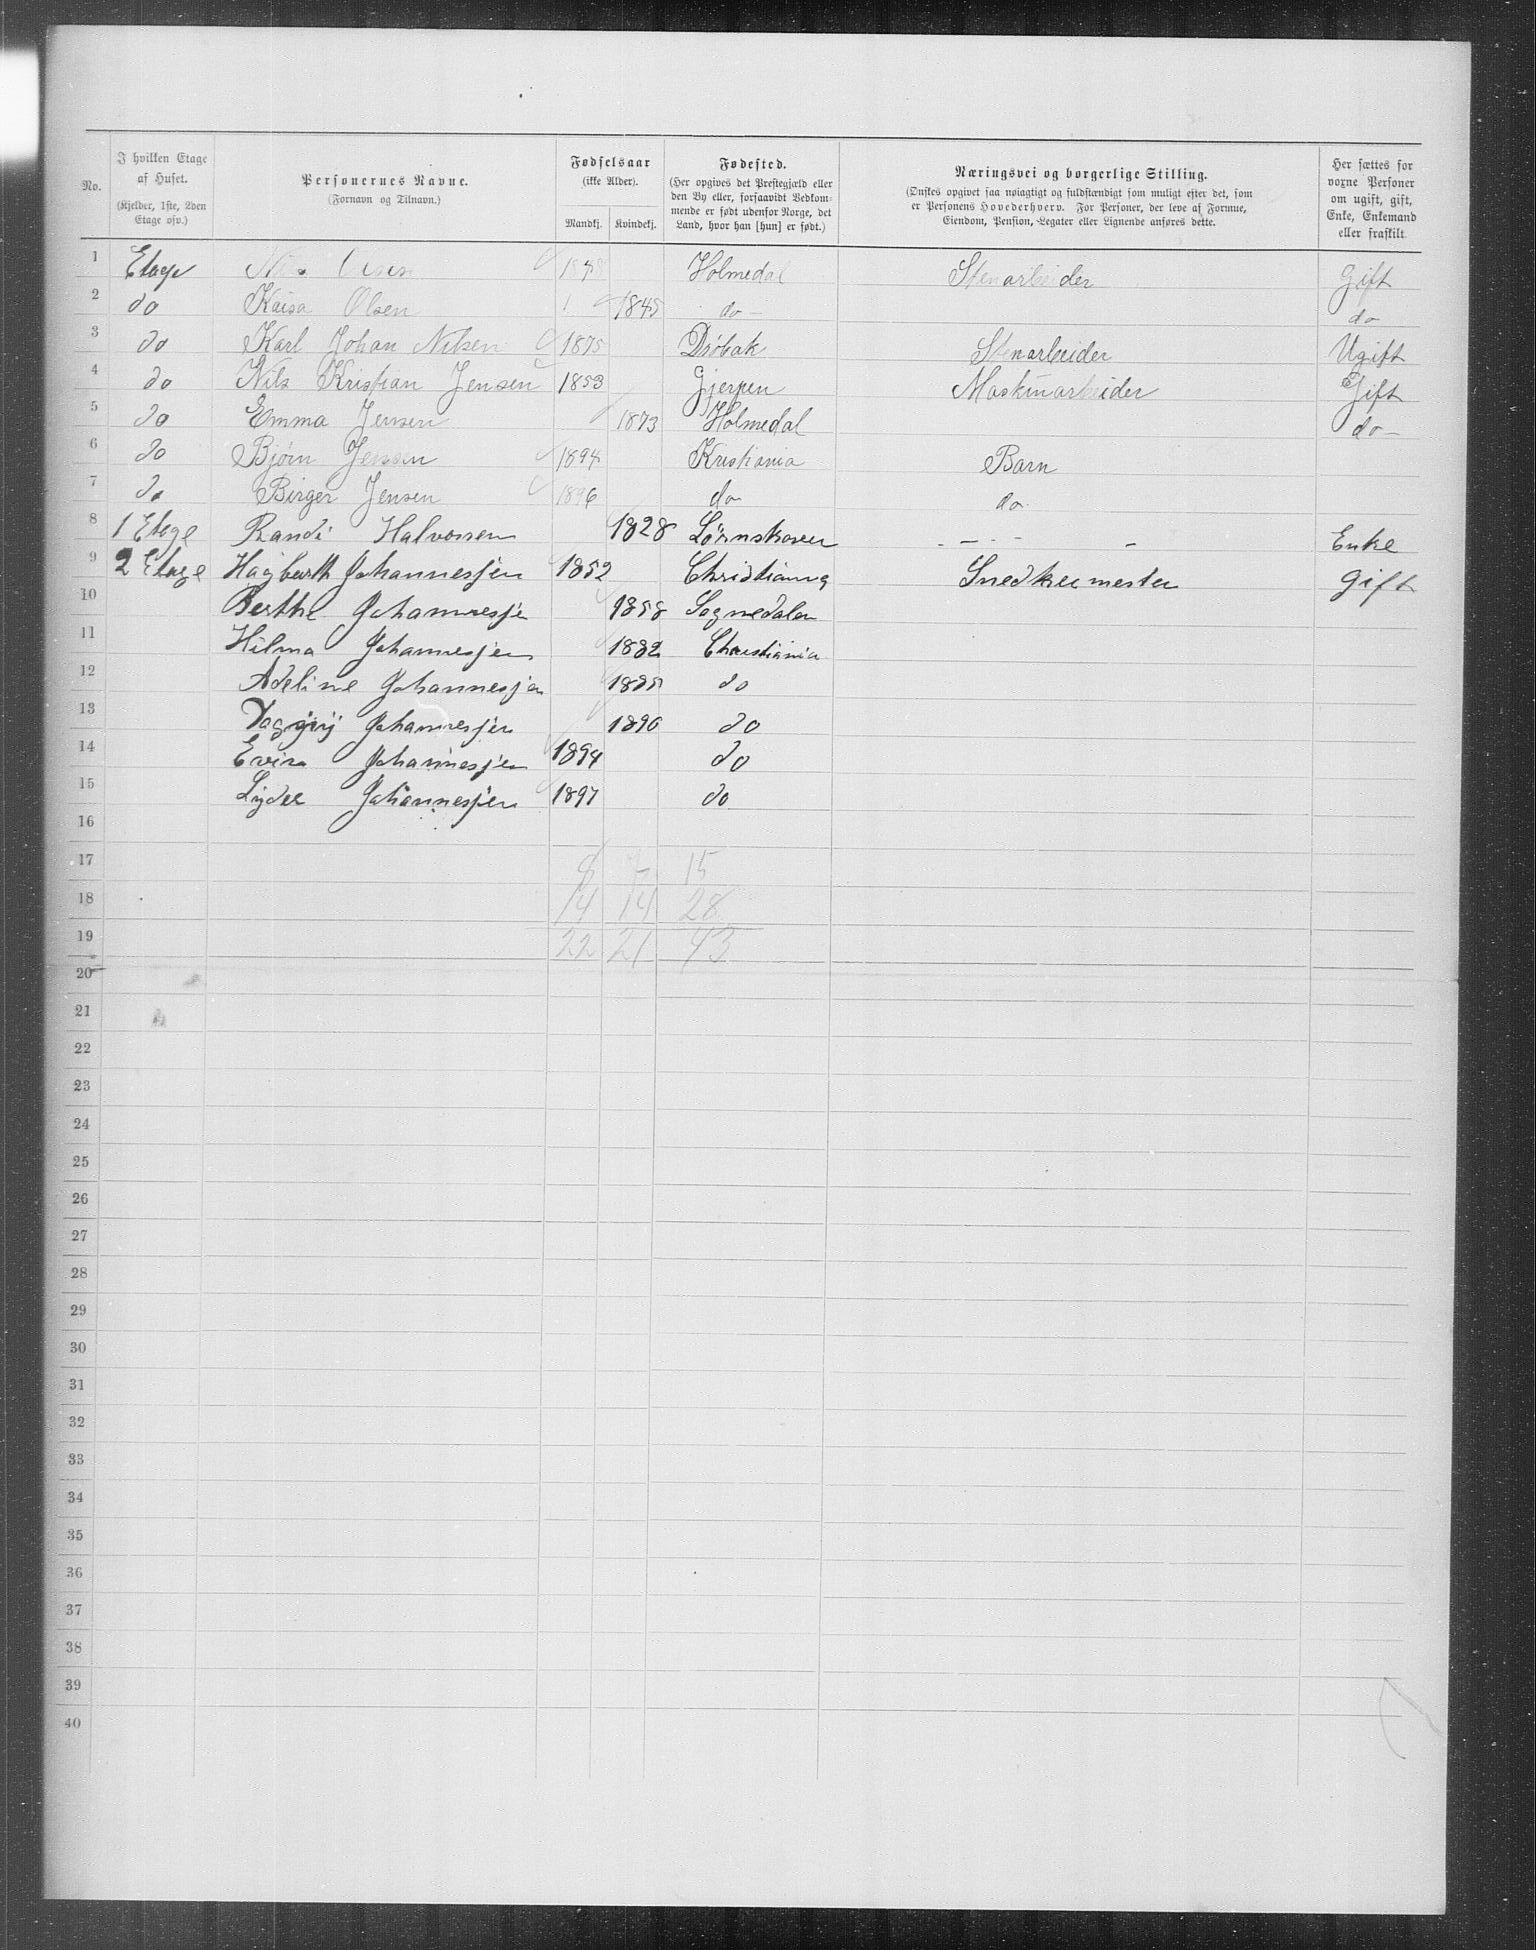 No.	I hvilken Etage af Huset. (Kjelder, 1ste, 2den Etage osv.)	Personernes Navne. (Fornavn og Tilnavn.)	Fødselsaar (ikke Alder). Mandkj. Kvindekj.	Fødested. (Her opgives det Prestegjæld eller den By eller, forsaavidt Vedkommende er født udenfor Norge, det Land, hvor han [hun] er født.)	Næringsvei og borgerlige Stilling. (Ønskes opgivet saa nøiagtigt og fuldstændigt som muligt efter det, som er Personens Hovederhverv. For Personer, der leve af Formue, Eiendom, Pension, Legater eller Lignende anføres dette.	Her sættes for voxne Personer om ugift, gift, Enke, Enkemand eller fraskilt.
1 Etage Olsen Holmedal Stenarbeider Gift
2 do Kaisa Olsen 1845 do — do
3 do Karl Johan Nilsen 1875 Drøbak Stenarbeider Ugift
4 do Nils Kristian Jensen 1853 Gjerpen Maskinarbeider Gift
5 do Emma Jensen 1873 Holmedal do —
6 do Bjørn Jensen 1894 Kristiania Barn
7 do Birger Jensen 1896 do do
8 1 Etage Randi Halvorsen 1828 - - - - Enke
9 2 Etage Hagbarth Johannesjen 1852 Christiania Snedkermester gift
10 Berthe Johannesje 1858 Sognedalen
11 Hilma Johannesjen 1882 Christiania
12 Adeline Johannesjen 1885 do
13 Johannesjen 1890 do
14 Johannesjen 1894 do
15 Johannesjen 1897 do
16
17 8 7 15
18 14 14 28
19 22 21 43
20
21
22
23
24
25
26
27
28
29
30
31
32
33
34
35
36
37
38
39
40